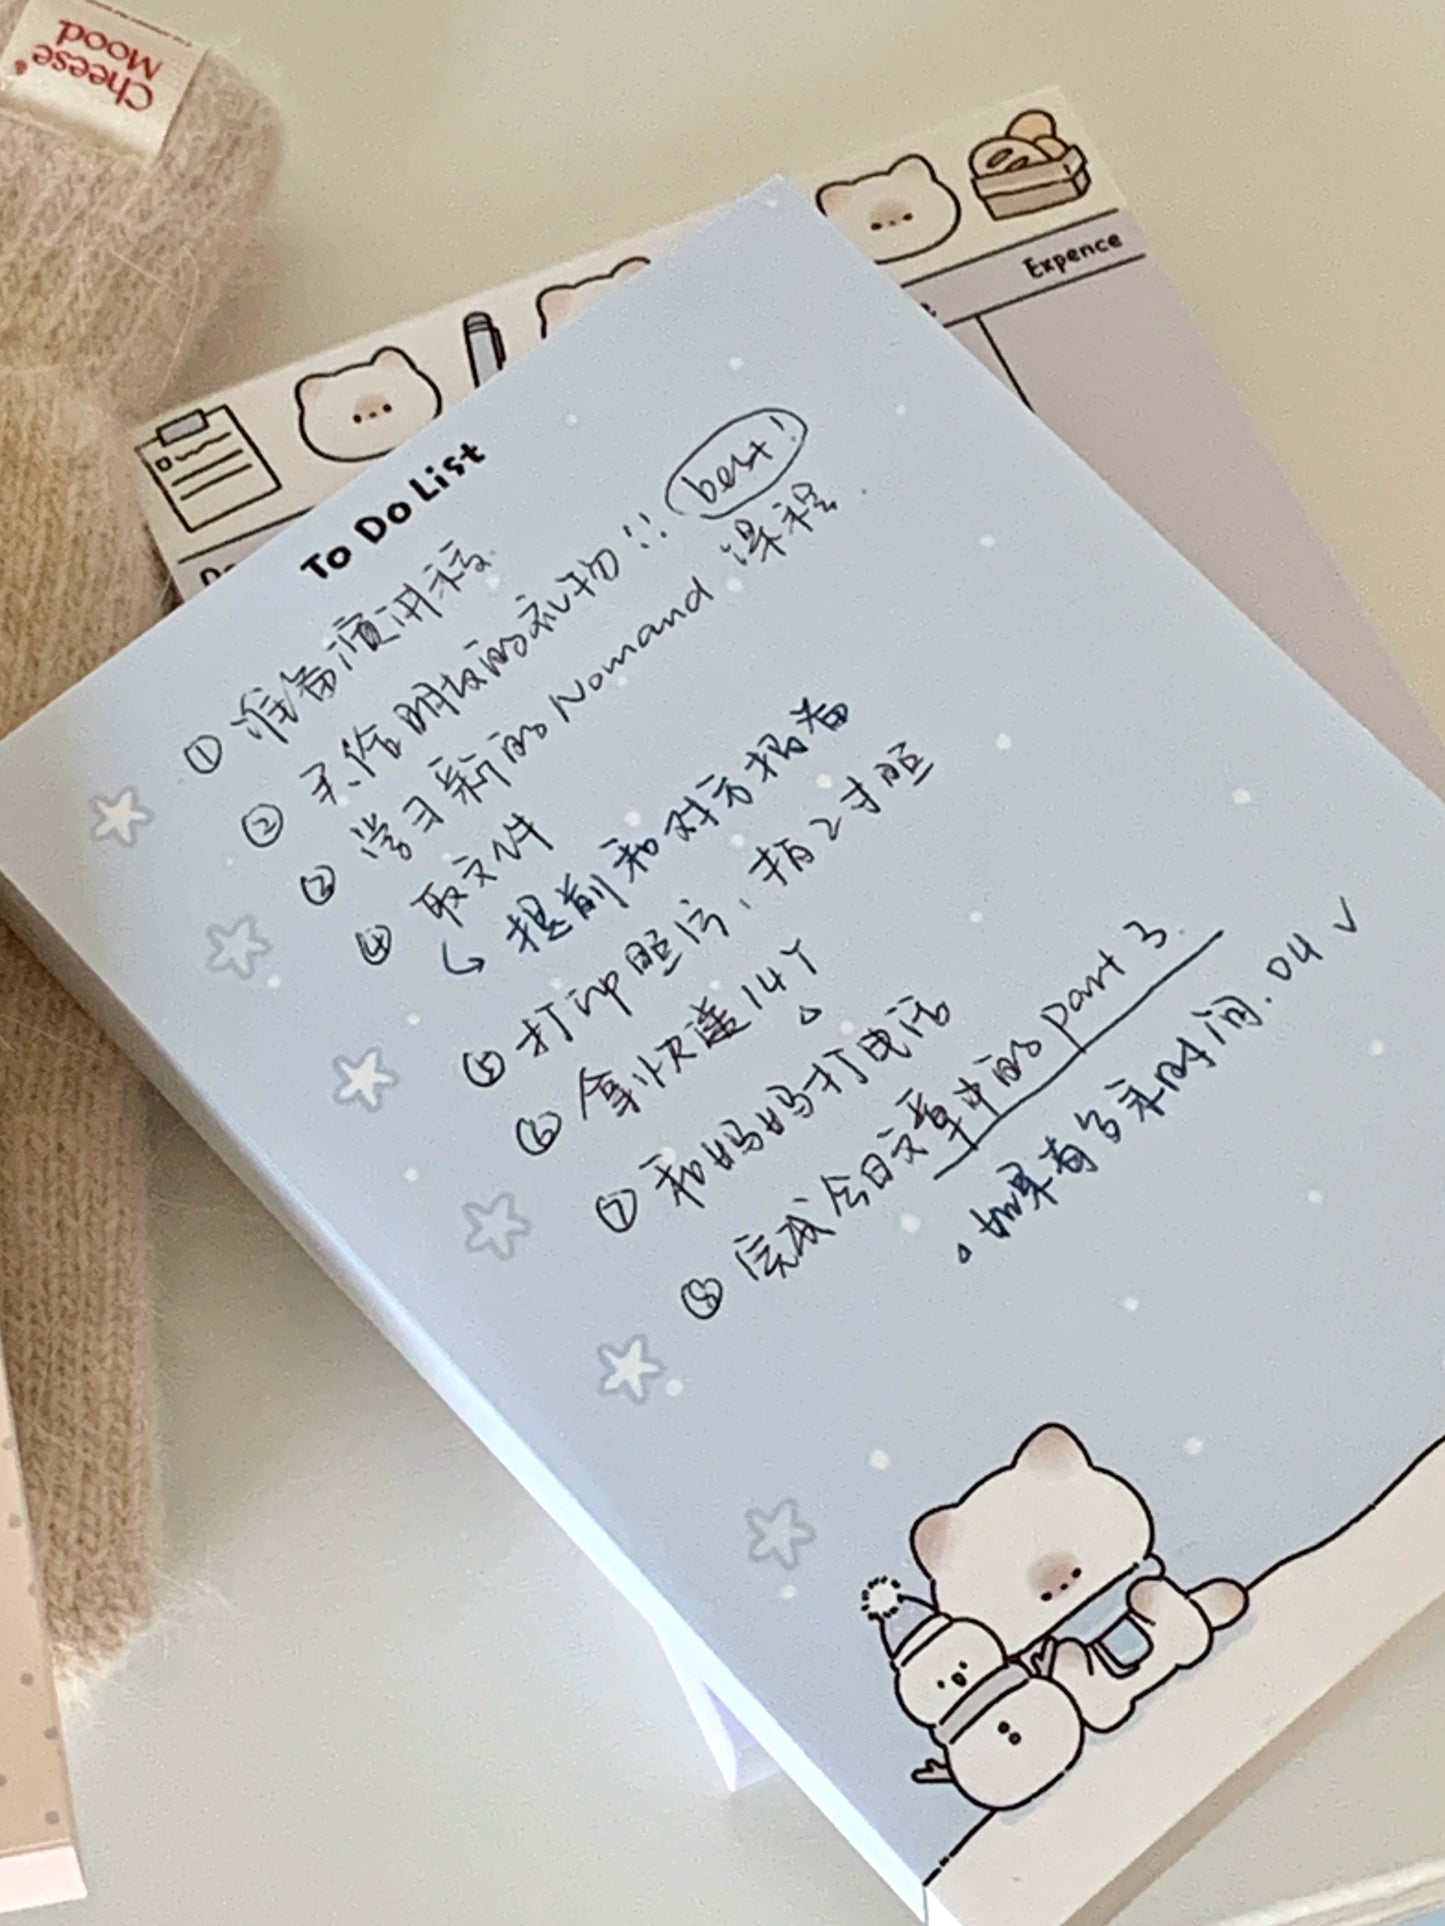 Cheese
Mood
Expence
To Do List
① 准备演讲稿
② 买给朋友的礼物!! best!
③ 学习新的 Nomand 课程
④ 取文件
↳ 提前和对方招着
⑤ 打印照片,拍2寸照
⑥ 拿快递14Y
⑦ 和妈妈打电话
⑧ 完成今日文章中的 part 3
如果有多余时间. 04 ✓